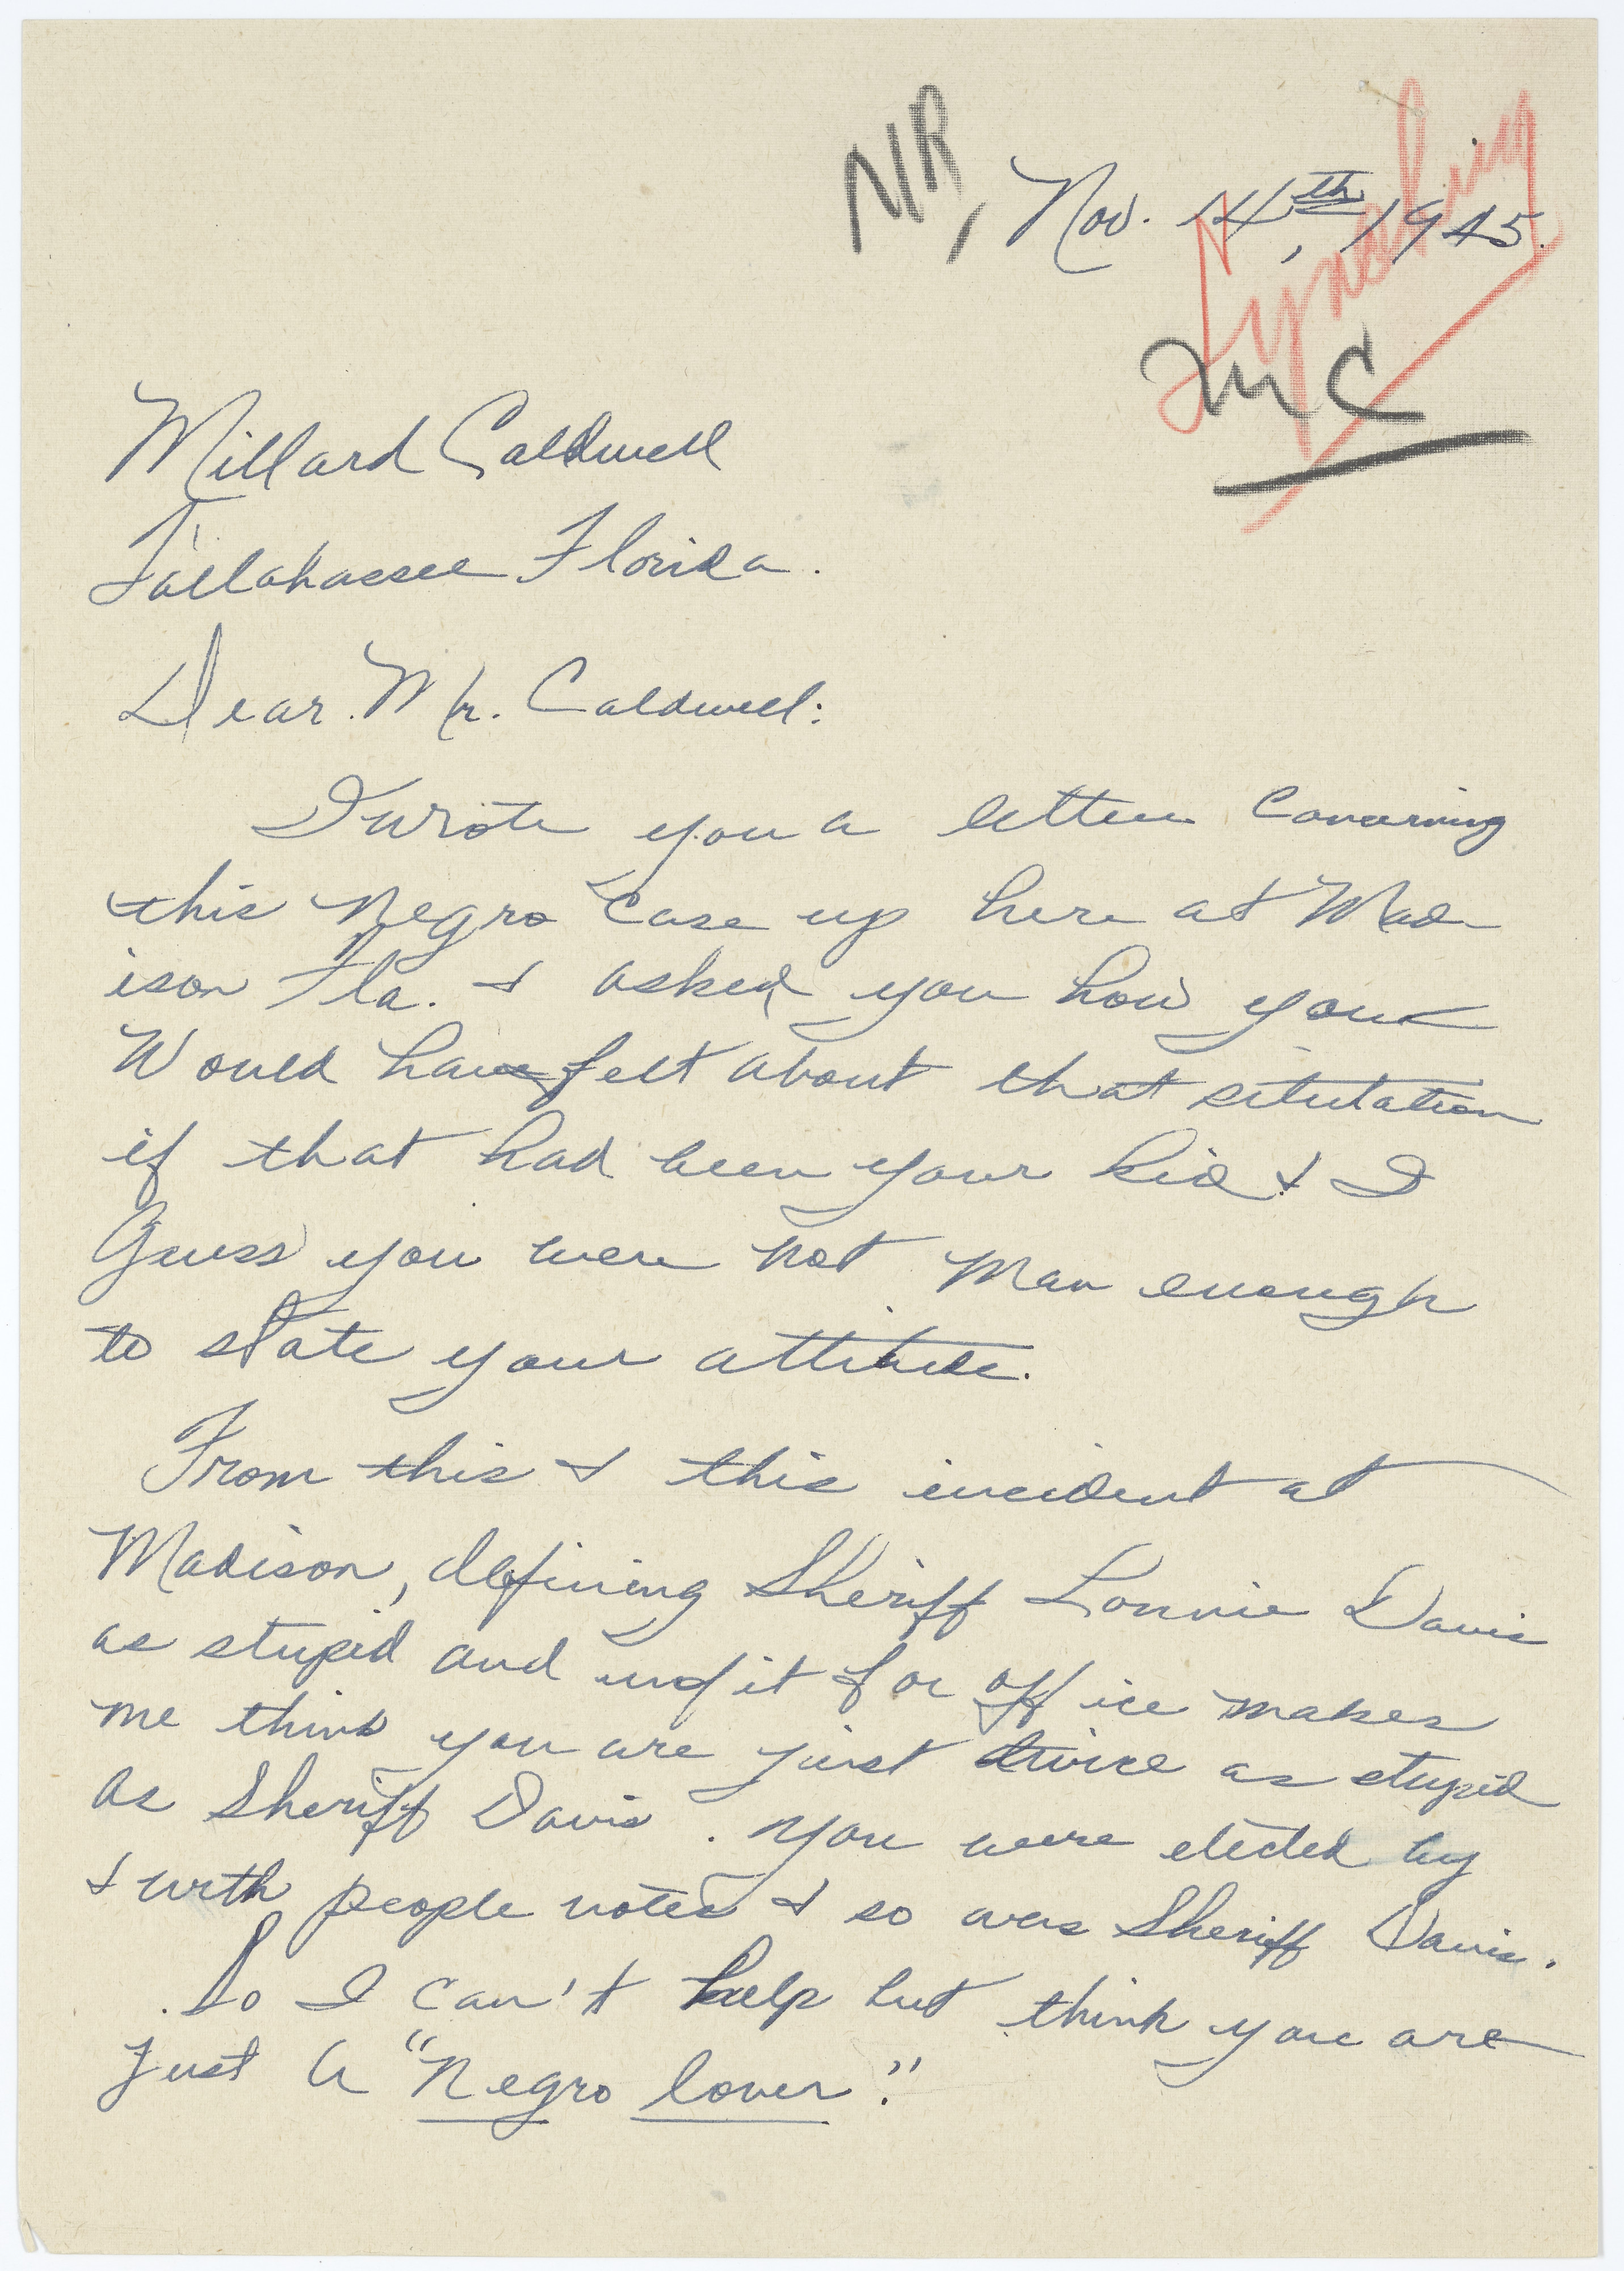 NR,
Nov. 14th, 1945.
Lynching
MC
Millard Caldwell
Tallahassee Florida.
Dear Mr. Caldwell:
I wrote you a letter concerning
this Negro case up here at Mad
ison Fla. & asked you how you
Would have felt about that situtation
if that had been your kid & I
Guess you were not man enough
to state your attitude.
From this & this incident at
Madison, defining Sheriff Lonnie Davis
as stupid and unfit for office makes
me think you are just twice as stupid
as Sheriff Davis. You were elected by
& with people votes & so was Sheriff Davis.
So I can't help but think you are
just a "Negro lover."